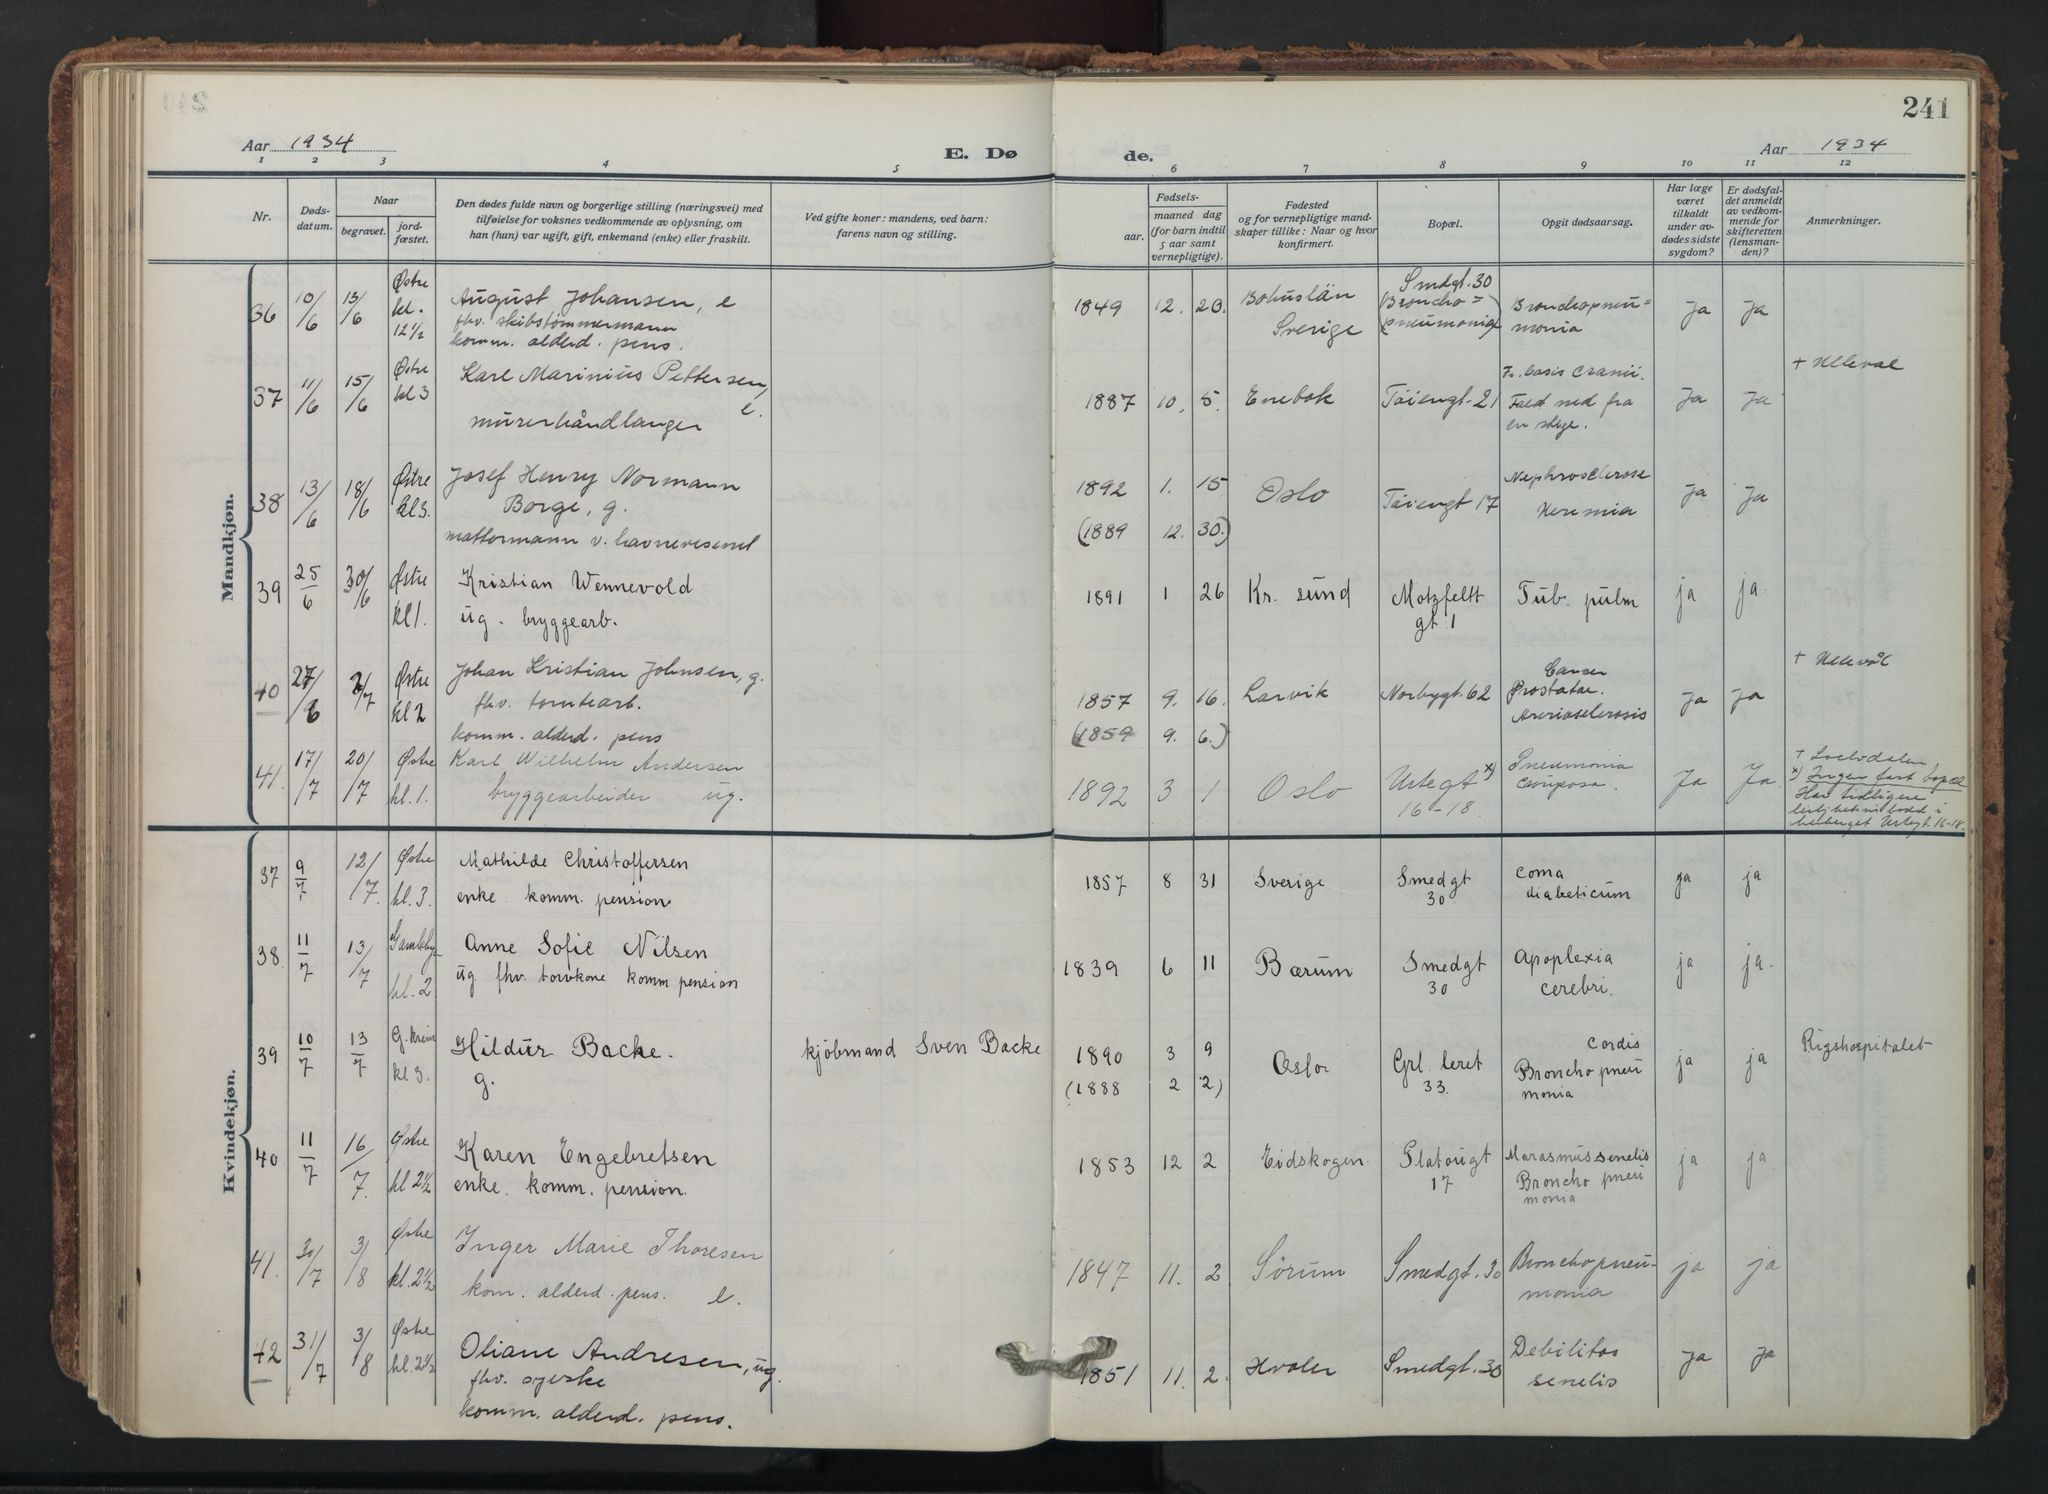 241
Aar 1934
E. Dø de.
Aar 1934
1 2 3 4 5 6 7 8 9 10 11 12
Nr.
Døds-
datum.
Naar
begravet.
jord-
fæstet.
Den dødes fulde navn og borgerlige stilling (næringsvei) med
tilføielse for voksnes vedkommende av oplysning, om
han (hun) var ugift, gift, enkemand (enke) eller fraskilt.
Ved gifte koner: mandens, ved barn:
farens navn og stilling.
Fødsels-
aar.
maaned dag
(for barn indtil
5 aar samt
vernepligtige).
Fødested
og for vernepligtige mand-
skaper tillike: Naar og hvor
konfirmert.
Bopæl.
Opgit dødsaarsag.
Har læge
været
tilkaldt
under av-
dødes sidste
sygdom?
Er dødsfal-
det anmeldt
av vedkom-
mende for
skifteretten
(lensman-
den)?
Anmerkninger.
Mandkjøn.
36 10/6 13/6 Østre kl. 12 1/2
August Johansen, e
fhv. skibstømmermann
komm. alderd. pens.
1849 12. 20. Bohuslän Sverige
Smedgt. 30
(Broncho=
pneumonia)
Bronchopneu=
monia
Ja Ja
37 11/6 15/6 Østre kl 3
Karl Marinius Pettersen,
e.
murerhåndlanger
1887 10. 5. Enebak Töiengt. 21
Fr. basis cranii.
Fald ned fra
en stige.
Ja Ja
+ Ulleval
38 13/6 18/6 Østre kl 3.
Josef Henry Normann
Borge, g.
mattormann v. havnevesenet
1892 1. 15
(1889 12. 30.)
Oslo Töiengt 17
Nephrosclerose
Uremia
Ja Ja
39 25/6 30/6 Østre kl 1.
Kristian Wennevold
ug. bryggearb.
1891 1 26 Kr. sund
Motzfeldt
gt 1
Tub. pulm
ja ja.
40 27/6 2/7 Østre kl 2
Johan Kristian Johnsen, g.
fhv. tomtearb.
komm. alderd. pens
1857 9. 16.
(1859 9. 6.)
Larvik Norbygt. 62
Cancer
Prostatae.
Arteriosclerosis
Ja Ja
+ Ullevål
41. 17/7 20/7 Østre kl. 1.
Karl Wilhelm Andersen
bryggearbeider ug.
1892 3 1 Oslo
Urtegt x)
16-18.
Pneumonia
crouposa.
Ja Ja
x) Ingen fast bopæl
Har tidligere
leilighetsvis bodd i
herberget Urtegt. 16-18.
Kvindekjøn.
37 9/7 12/7 Østre kl. 3.
Mathilde Christoffersen
enke komm. pension.
1857 8 31 Sverige
Smedgt
30
coma
diabeticum
ja ja
38. 11/7 13/7 Gamleby kl. 2.
Anne Sofie Nilsen
ug. fhv. torvkone komm pension
1839 6 11 Bærum
Smedgt
30
Apoplexia
cerebri.
ja ja.
39 10/7 13/7 G. krem kl 3.
Hildur Backe.
g.
kjøbmand Sven Backe
1890 3 9
(1888 2 2)
Oslo.
Grl. leret
33.
cordis
Broncho pneu
monia
ja ja
Rigshospitalet
40 11/7 16/7. Østre kl 2 1/2
Karen Engebretsen
enke. komm. pension.
1853 12 2 Eidskogen
Platougt
17
Marasmus senelis
Broncho pneu
monia
ja ja.
41. 30/7 3/8 Østre kl. 2 1/2
Inger Marie Thoresen
kom. alderd. pens. e.
1847 11. 2 Sørum Smedgt. 30
Bronchopneu-
monia
ja ja
42 31/7 3/8 Østre kl. 2 1/2
Oliane Andresen, ug.
fhv. syerske
komm. alderd. pens.
1851 11. 2. Hvaler Smedgt. 30
Debilitas
senelis
Ja Ja